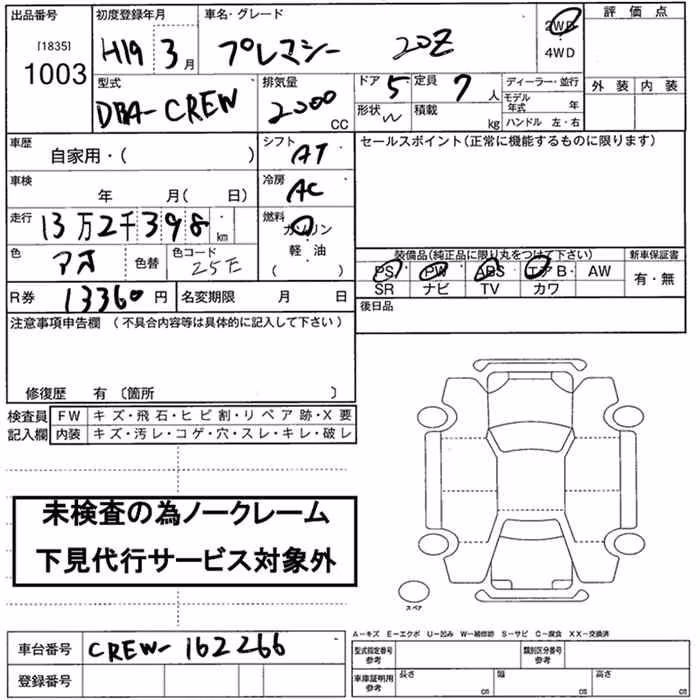 出品番号 初度登録年月 車名・グレード 評価点
[1835] 1003 H19 3月 プレマシー 20Z 2WD
4WD
外装 内装
型式 排気量 ドア 5 定員 7人 ディーラー・並行
DBA-CREW 2000CC 形状 W 積載 kg モデル年式 年
ハンドル 左・右
車歴 自家用・( ) シフト AT セールスポイント(正常に機能するものに限ります)
車検 年 月( 日) 冷房 AC
走行 13万2千398km 燃料 ガソリン
軽・油
( )
色 アオ 色替 色コード 25E
装備品(純正品に限り丸をつけて下さい) 新車保証書
PS PW ABS エアB AW 有・無
SR ナビ TV カワ
R券 13360円 名変期限 月 日
後日品
注意事項申告欄(不具合内容等は具体的に記入して下さい)
修復歴 有 〔箇所 〕
検査員 FW キズ・飛石・ヒビ割・リペア跡・X要
記入欄 内装 キズ・汚レ・コゲ・穴・スレ・キレ・破レ
未検査の為ノークレーム
下見代行サービス対象外
スペア
A-キズ E-エクボ U-凹み W-補修跡 S-サビ C-腐食 XX-交換済
車台番号 CREW-162266 型式指定番号参考 類別区分番号参考
登録番号 車庫証明用参考 長さ cm 幅 cm 高さ cm